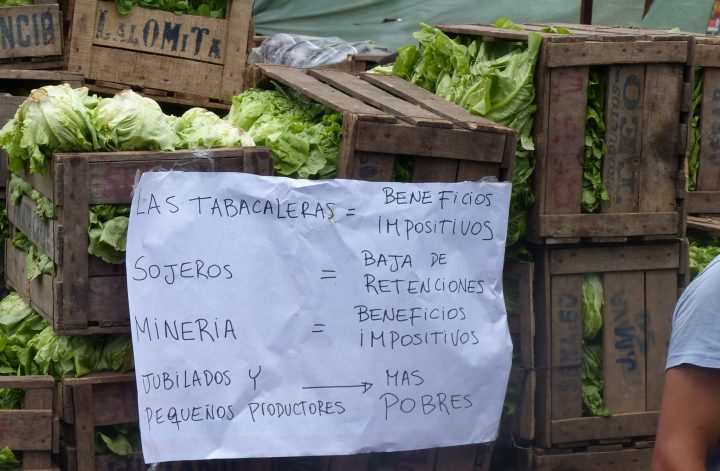 NCIO
LALOMITA
LAS TABACALERAS = BENEFICIOS
IMPOSITIVOS
SOJEROS = BAJA DE
RETENCIONES
MINERIA = BENEFICIOS
IMPOSITIVOS
JUBILADOS Y → MAS
PEQUEÑOS PRODUCTORES POBRES